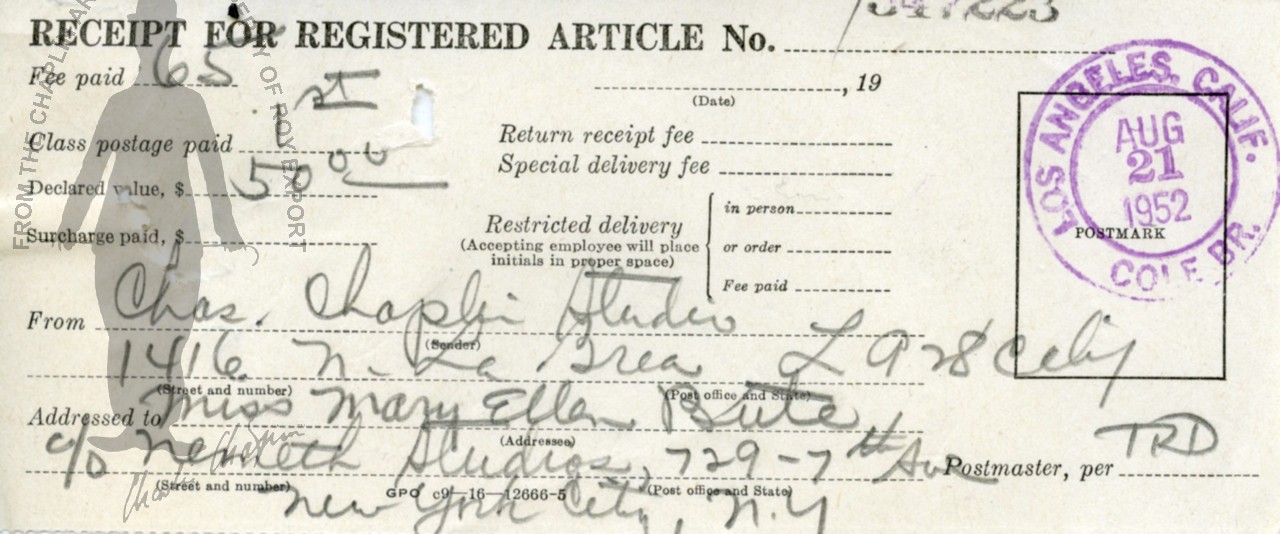 RECEIPT FOR REGISTERED ARTICLE No. 347223
Fee paid 65
(Date) , 19
Class postage paid 1st
Return receipt fee
Declared value, $ 50 00
Special delivery fee
Surcharge paid, $
Restricted delivery
(Accepting employee will place initials in proper space)
in person
or order
Fee paid
LOS ANGELES, CALIF.
AUG
21
1952
COLE BR.
POSTMARK
From Chas. Chaplin Studio
(Sender)
1416 N. La Brea L A 28 Calif
(Street and number) (Post office and State)
Addressed to Miss Mary Ellen Bute
(Addressee)
c/o Nemeth Studios, 729-7th Ave
(Street and number) (Post office and State)
New York City, N.Y
GPO c9-16-12666-5
Postmaster, per TRD
FROM THE CHAPLIN AR
ERTY OF ROY EXPORT